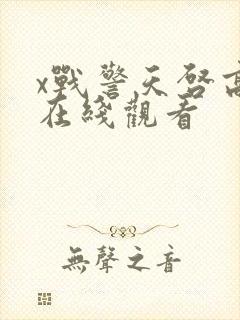 x戰警天啓高
在綫觀看
無聲之音